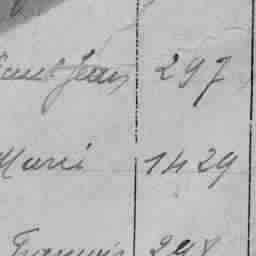 Jean 297
Marie 1429
François 298